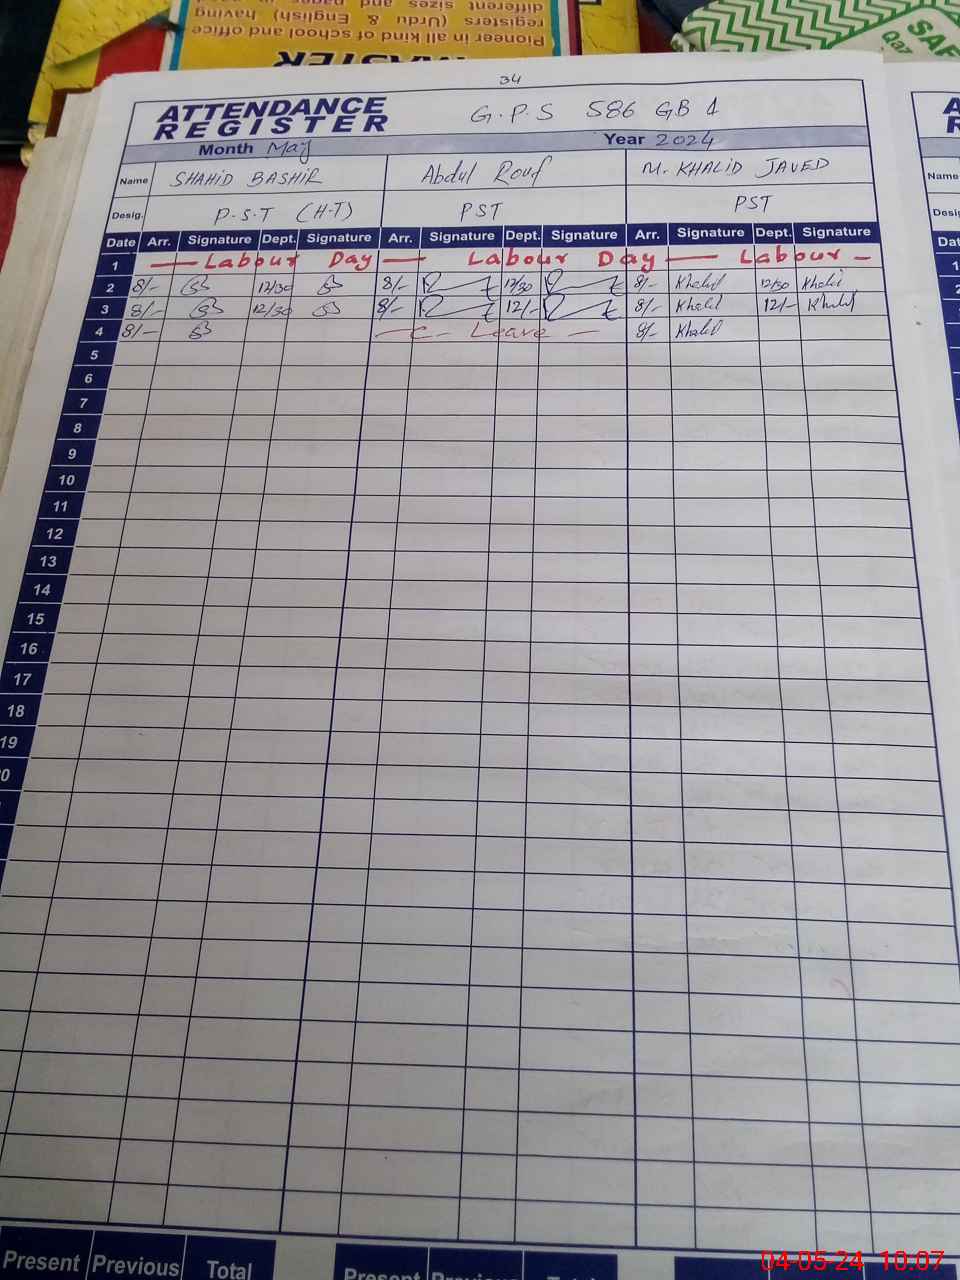 Pioneer in all kind of school and office
registers (Urdu & English) having
different sizes and pages in good
MASTER
SAF
Qar
34
ATTENDANCE
REGISTER
G.P.S 586 GB 1
Month May Year 2024
Name SHAHID BASHIR Abdul Rouf M. KHALID JAVED
Desig. P.S.T (H-T) PST PST
Date Arr. Signature Dept. Signature Arr. Signature Dept. Signature Arr. Signature Dept. Signature
1 — Labour Day — Labour Day — Labour -
2 8/- 12/30 8/- 12/30 8/- Khalid 12/30 Khalid
3 8/- 12/30 8/- 12/- 8/- Khalid 12/- Khalid
4 8/- — C - Leave — 8/- Khalid
5
6
7
8
9
10
11
12
13
14
15
16
17
18
19
Present Previous Total Present Previous Total
A
R
Name
Desig
Dat
1
04-05-24 10:07